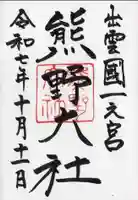 出雲國一之宮
熊野大社
令和七年十月十一日